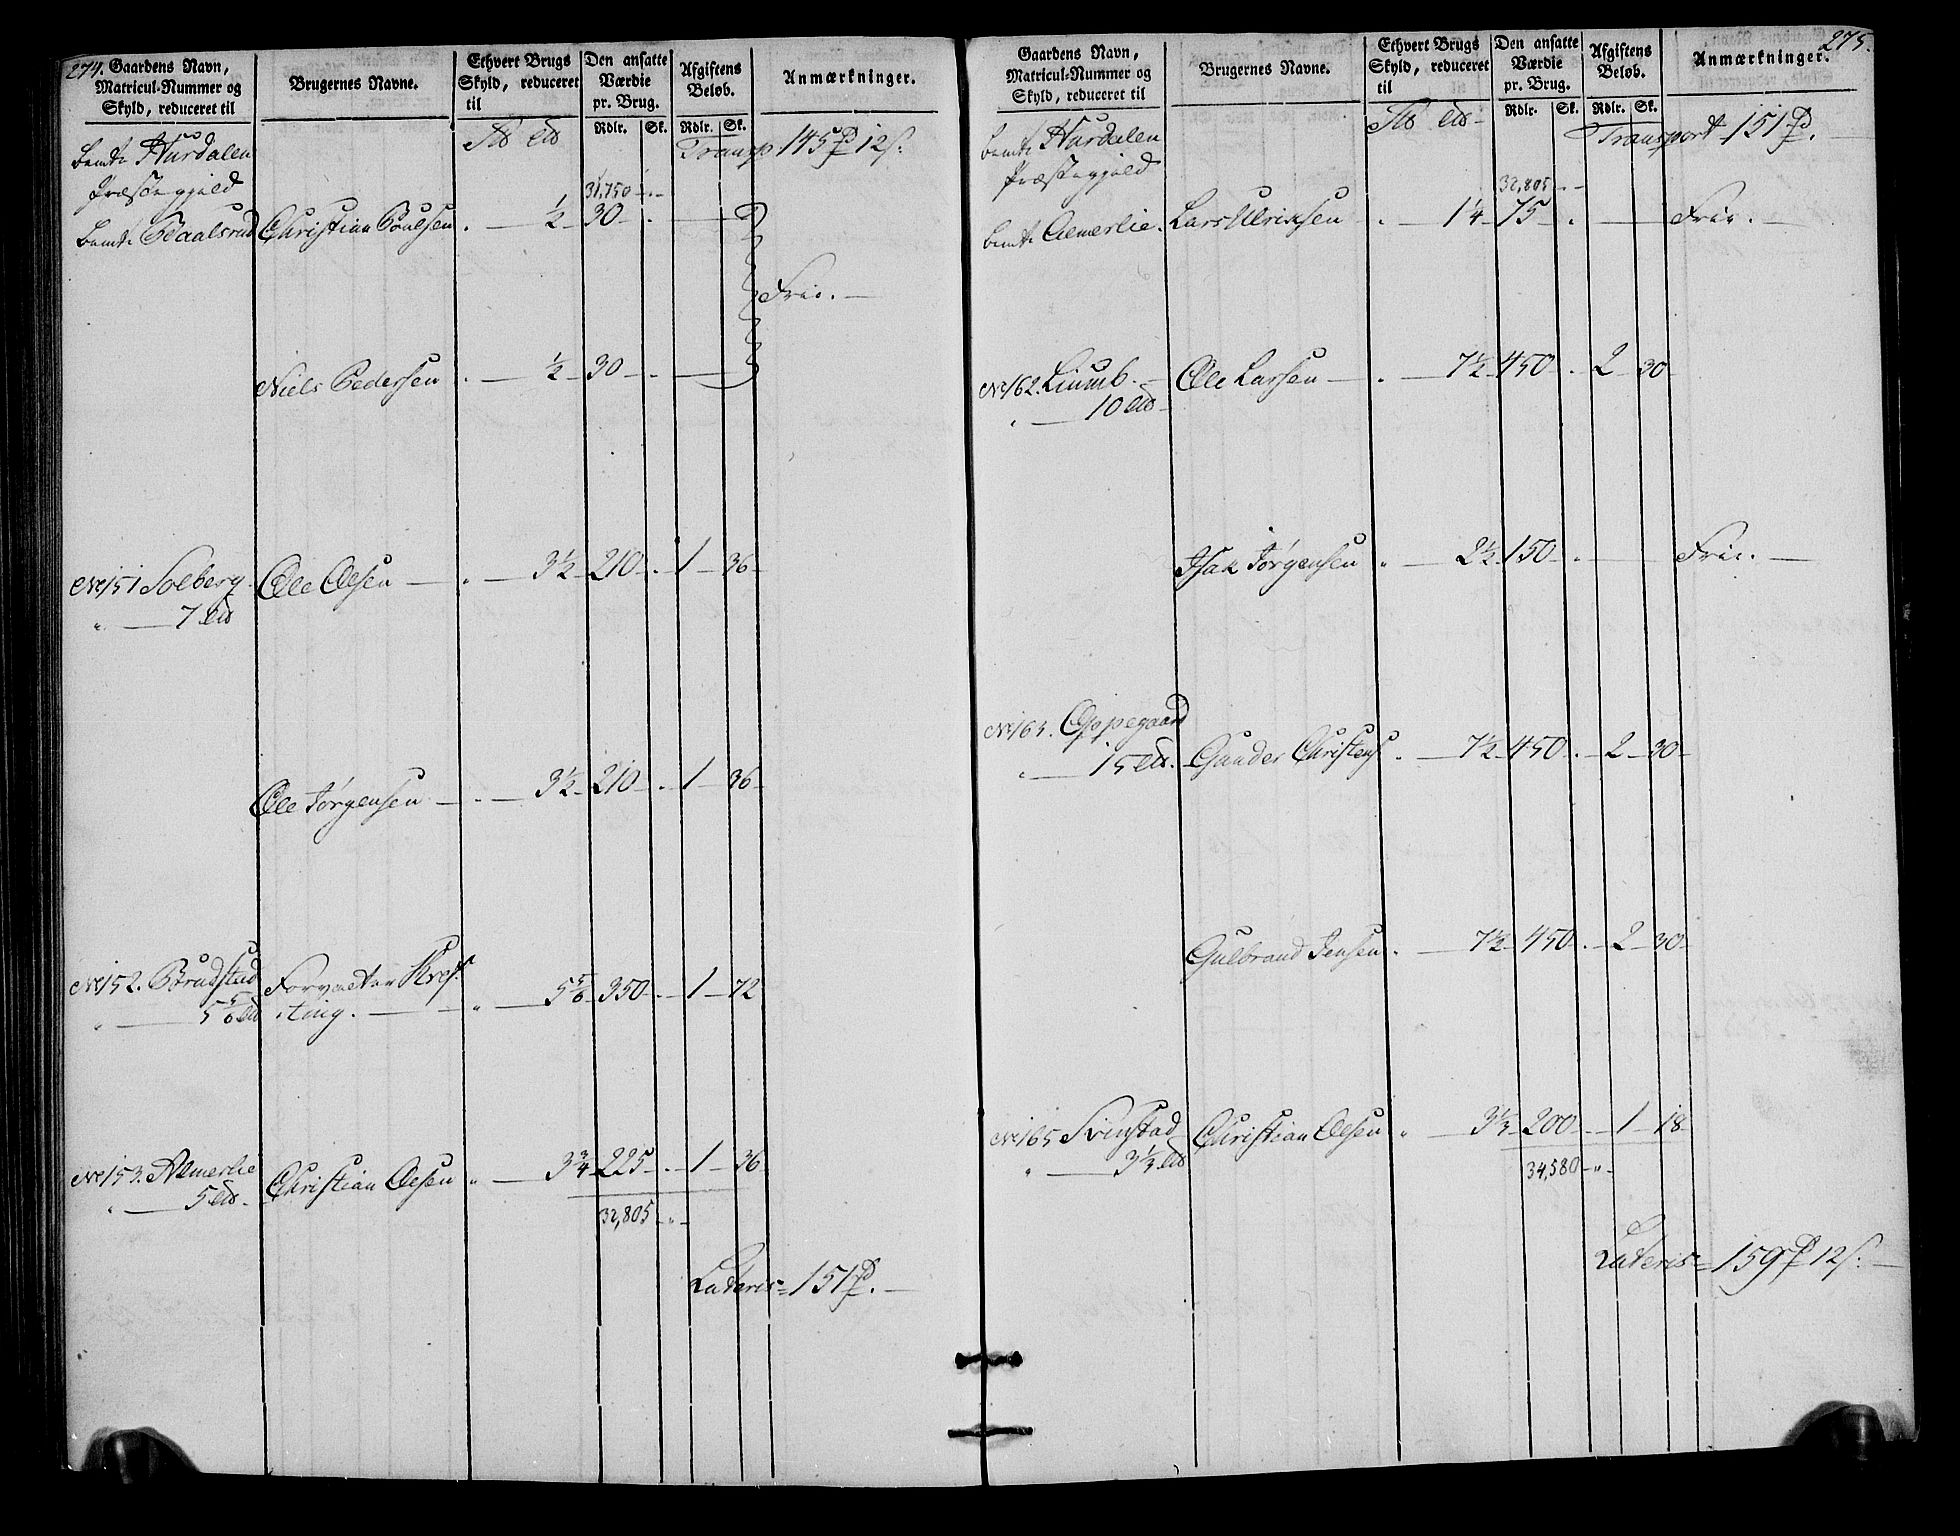 274.
Gaardens Navn, Matricul-Nummer og Skyld, reduceret til
Brugernes Navne.
Ethvert Brugs Skyld, reduceret til
Den ansatte Værdie pr. Brug.
Rdlr. Sk.
Afgiftens Beløb.
Rdlr. Sk.
Anmærkninger.
bemte Hurdalen Transp. 145 12 s.
Præstegjeld 31,750
bemte Christian Poulsen ½ 30
Frie.
Niels Pedersen ½ 30
No 151 Solberg Ole Olsen 3½ 210 1 36
7
Ole Jørgensen 3½ 210 1 36
No 152. Brudstad Forvalter 5 5/6 350 1 72
5 5/6
No 153. Almerlie Christian Olsen 3¾ 225 1 36
5
32,805
Lateris 151
275.
Gaardens Navn, Matricul-Nummer og Skyld, reduceret til
Brugernes Navne.
Ethvert Brugs Skyld, reduceret til
Den ansatte Værdie pr. Brug.
Rdlr. Sk.
Afgiftens Beløb.
Rdlr. Sk.
Anmærkninger.
bemte Hurdalen Transport 151
Præstegjeld 32,805
bemte Almerlie. Lars Ulriksen 1¼ 75 Frie.
No 162. Ole Larsen 7½ 450 2 30
10
Isak Jørgensen 2½ 150 Frie.
No 163. Oppegaard
15 Gunder Christens 7½ 450 2 30
Gulbrand Jensen 7½ 450 2 30
No 165 Svinstad Christian Olsen 3⅓ 200 1 18
3⅓
34,580
Lateris 159 12 s.